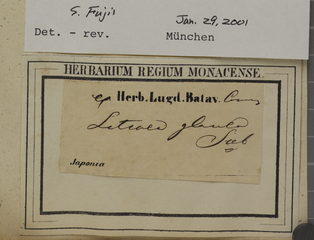 S. Fujii Jan. 29, 2001
Det. - rev. München
HERBARIUM REGIUM MONACENSE.
ex Herb. Lugd. Batav.
Litsaea glauca
Sieb
Japonia